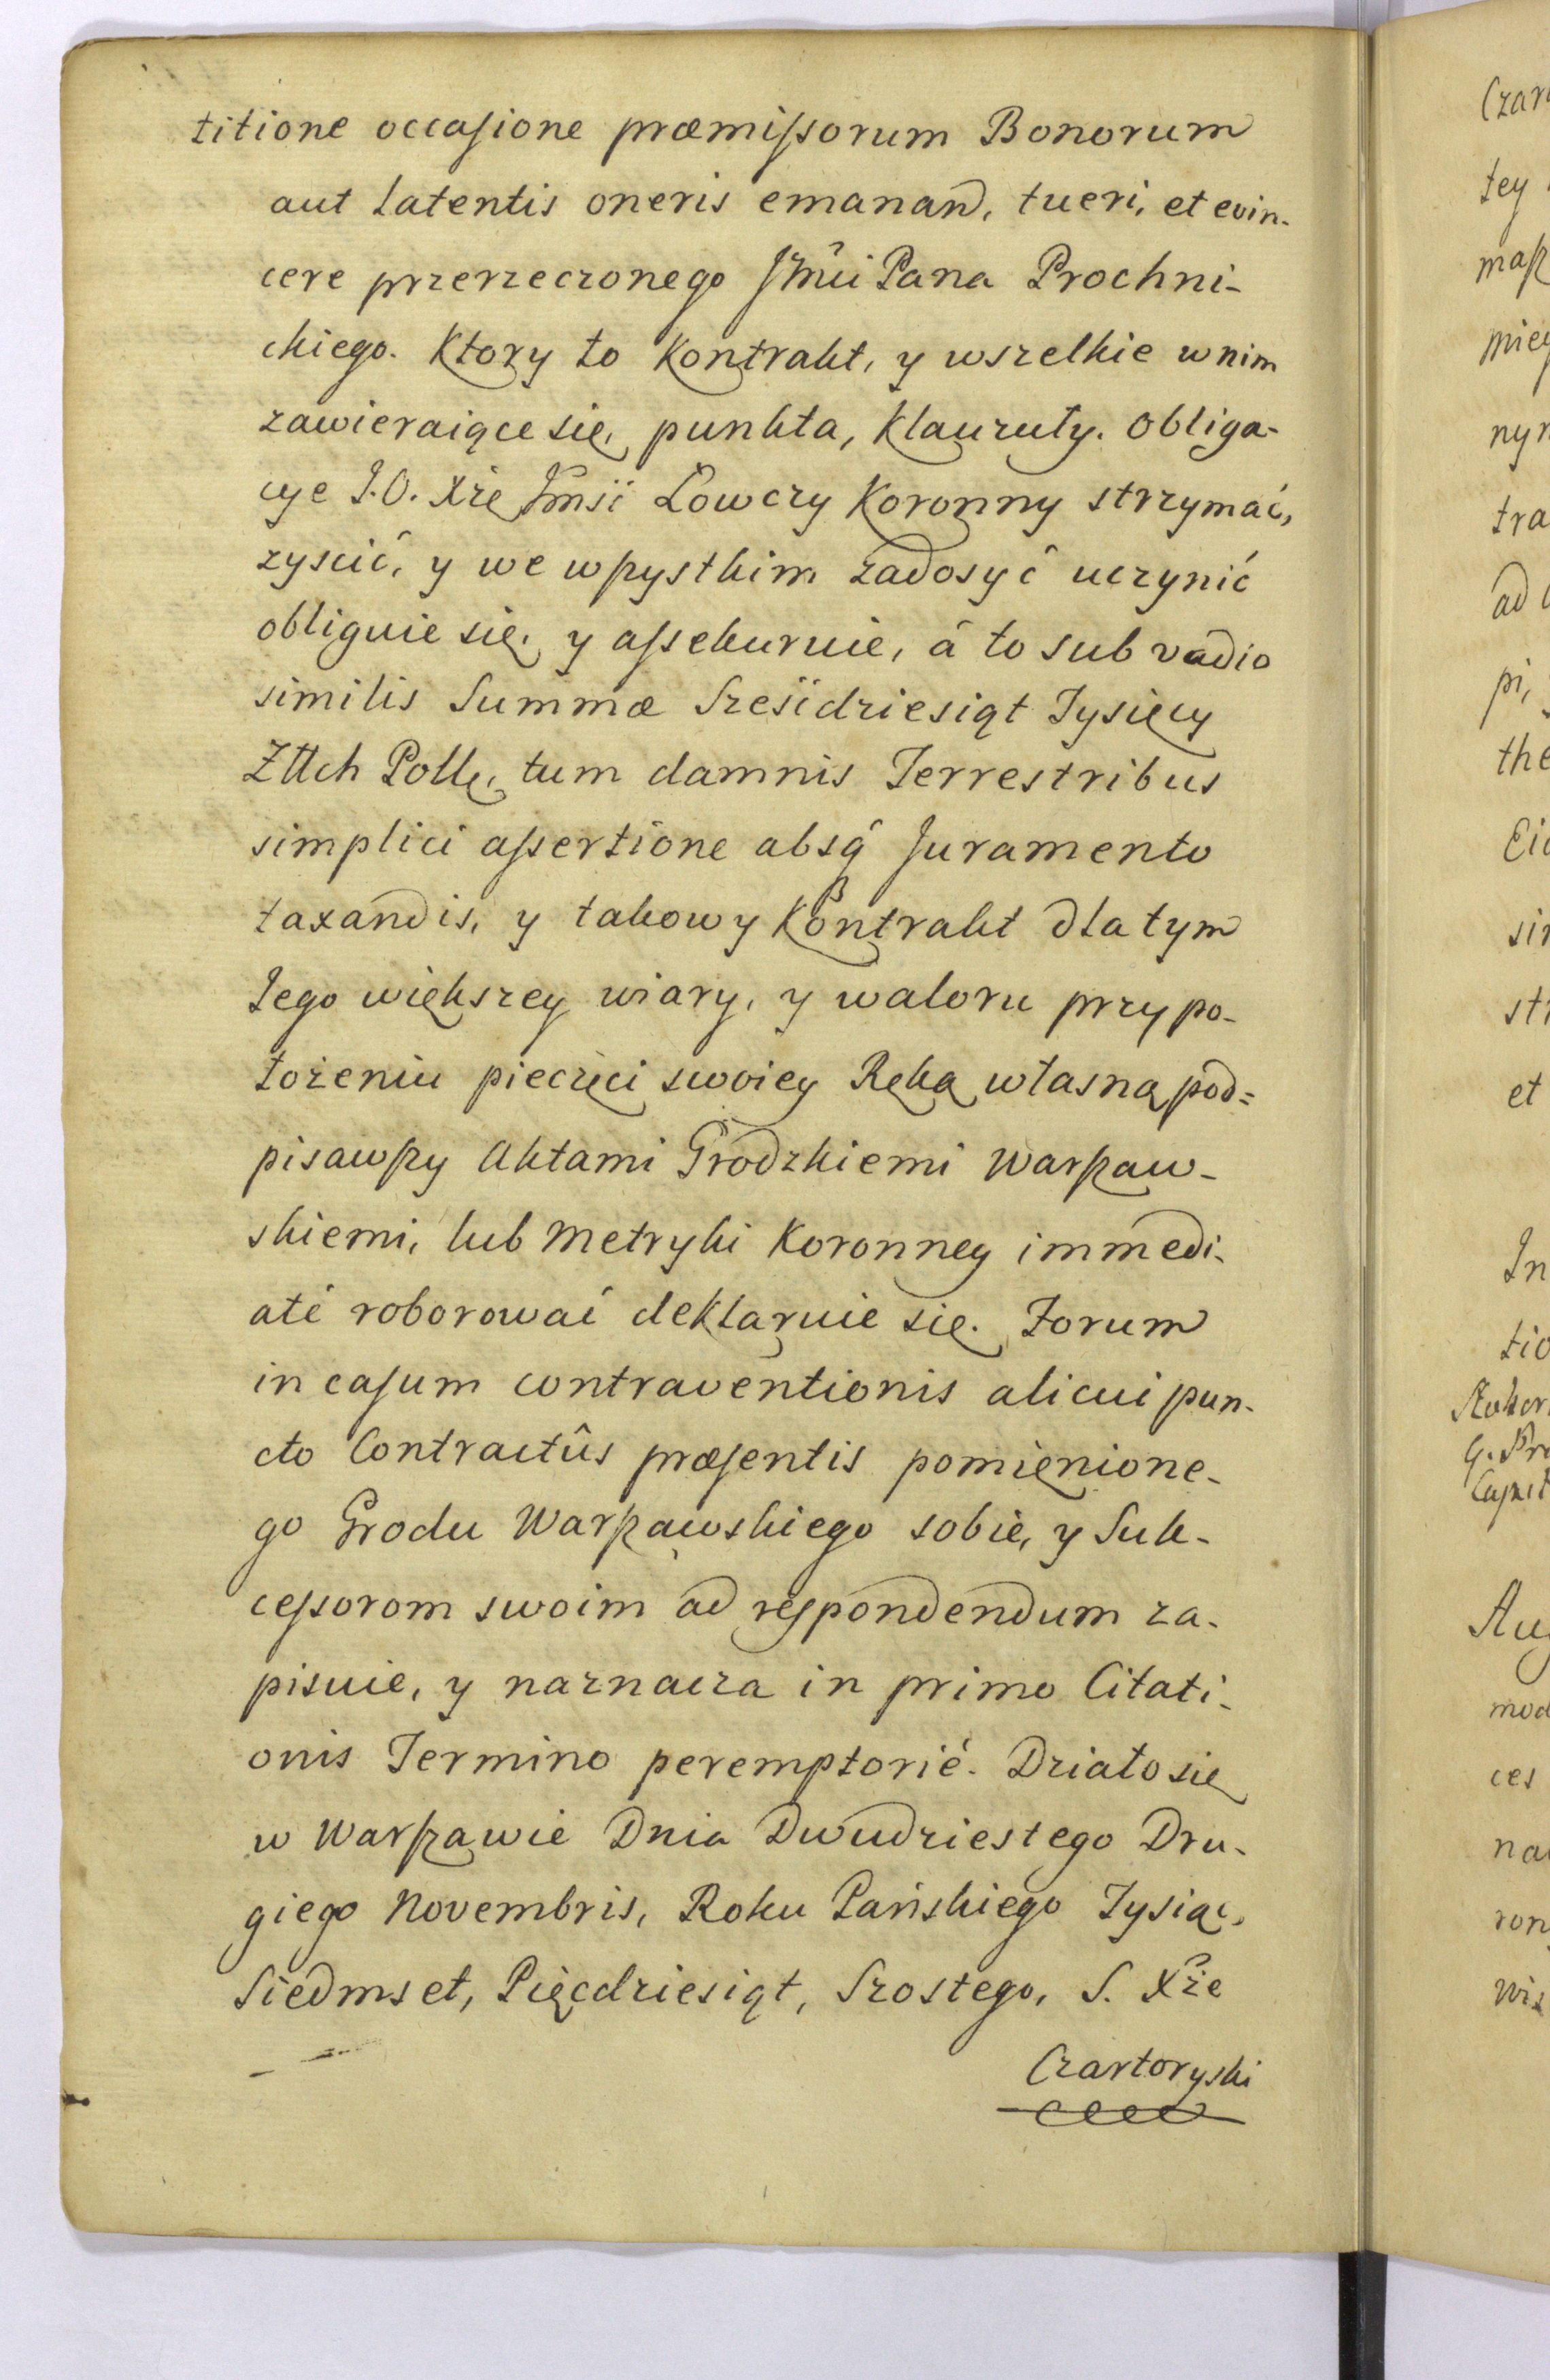 titione occasione præmissorum Bonorum
aut latentis oneris emanand, tueri, et evin-
cere przerzeczonego Jmći Pana Prochni-
ckiego. Ktory to Kontrakt, y wszelkie w nim
zawieraiące się, punkta, Klauzuły. Obliga-
cye J.O. Xże Jmść Łowczy Koronny strzymać,
zyscić, y we wszystkim zadosyć uczynić
obliguie się, y assekuruie, á to sub vadio
similis Summæ Sześćdziesiąt Tysięcy
Złłch Polł, tum damnis Terrestribus
simplici assertione absq́ Juramento
taxandis, y takowy Kontrakt dla tym
Jego większey wiary, y waloru przy po-
łożeniu pieczęci swoiey Ręką własną pod=
pisawszy Aktami Grodzkiemi Warszaw-
skiemi, lub Metryki Koronney immedi-
atè roborować deklaruie się. Forum
in casum contraventionis alicui pun-
cto Contractûs præsentis pomienione-
go Grodu Warszawskiego sobie, y Suk-
cessorom swoim ad respondendum za-
pisuie, y naznacza in primo Citati-
onis Termino peremptoriè. Działo się
w Warszawie Dnia Dwudziestego Dru-
giego Novembris, Roku Pańskiego Tysiąc,
Siedmset, Pięcdziesiąt, Szostego, S. Xże
Czartoryski
Czar
tey
masz
nyn
tra
ad
pi,
the
sir
et
In
tio
Aug
mod
ces
na
ron